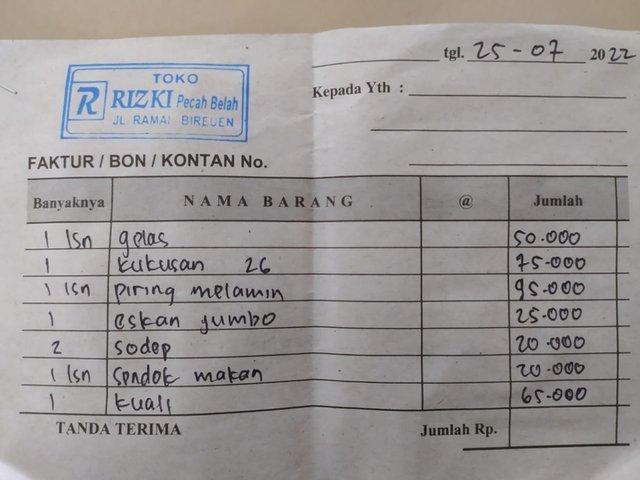 tgl. 25-07 2022
TOKO
R RIZKI Pecah Belah
JL. RAMAI BIREUEN
Kepada Yth :
FAKTUR / BON / KONTAN No.
Banyaknya NAMA BARANG @ Jumlah
1 lsn gelas 50.000
1 kukusan 26 75.000
1 lsn piring melamin 95.000
1 eskan jumbo 25.000
2 sodep 20.000
1 lsn sendok makan 20.000
1 kuali 65.000
TANDA TERIMA Jumlah Rp.